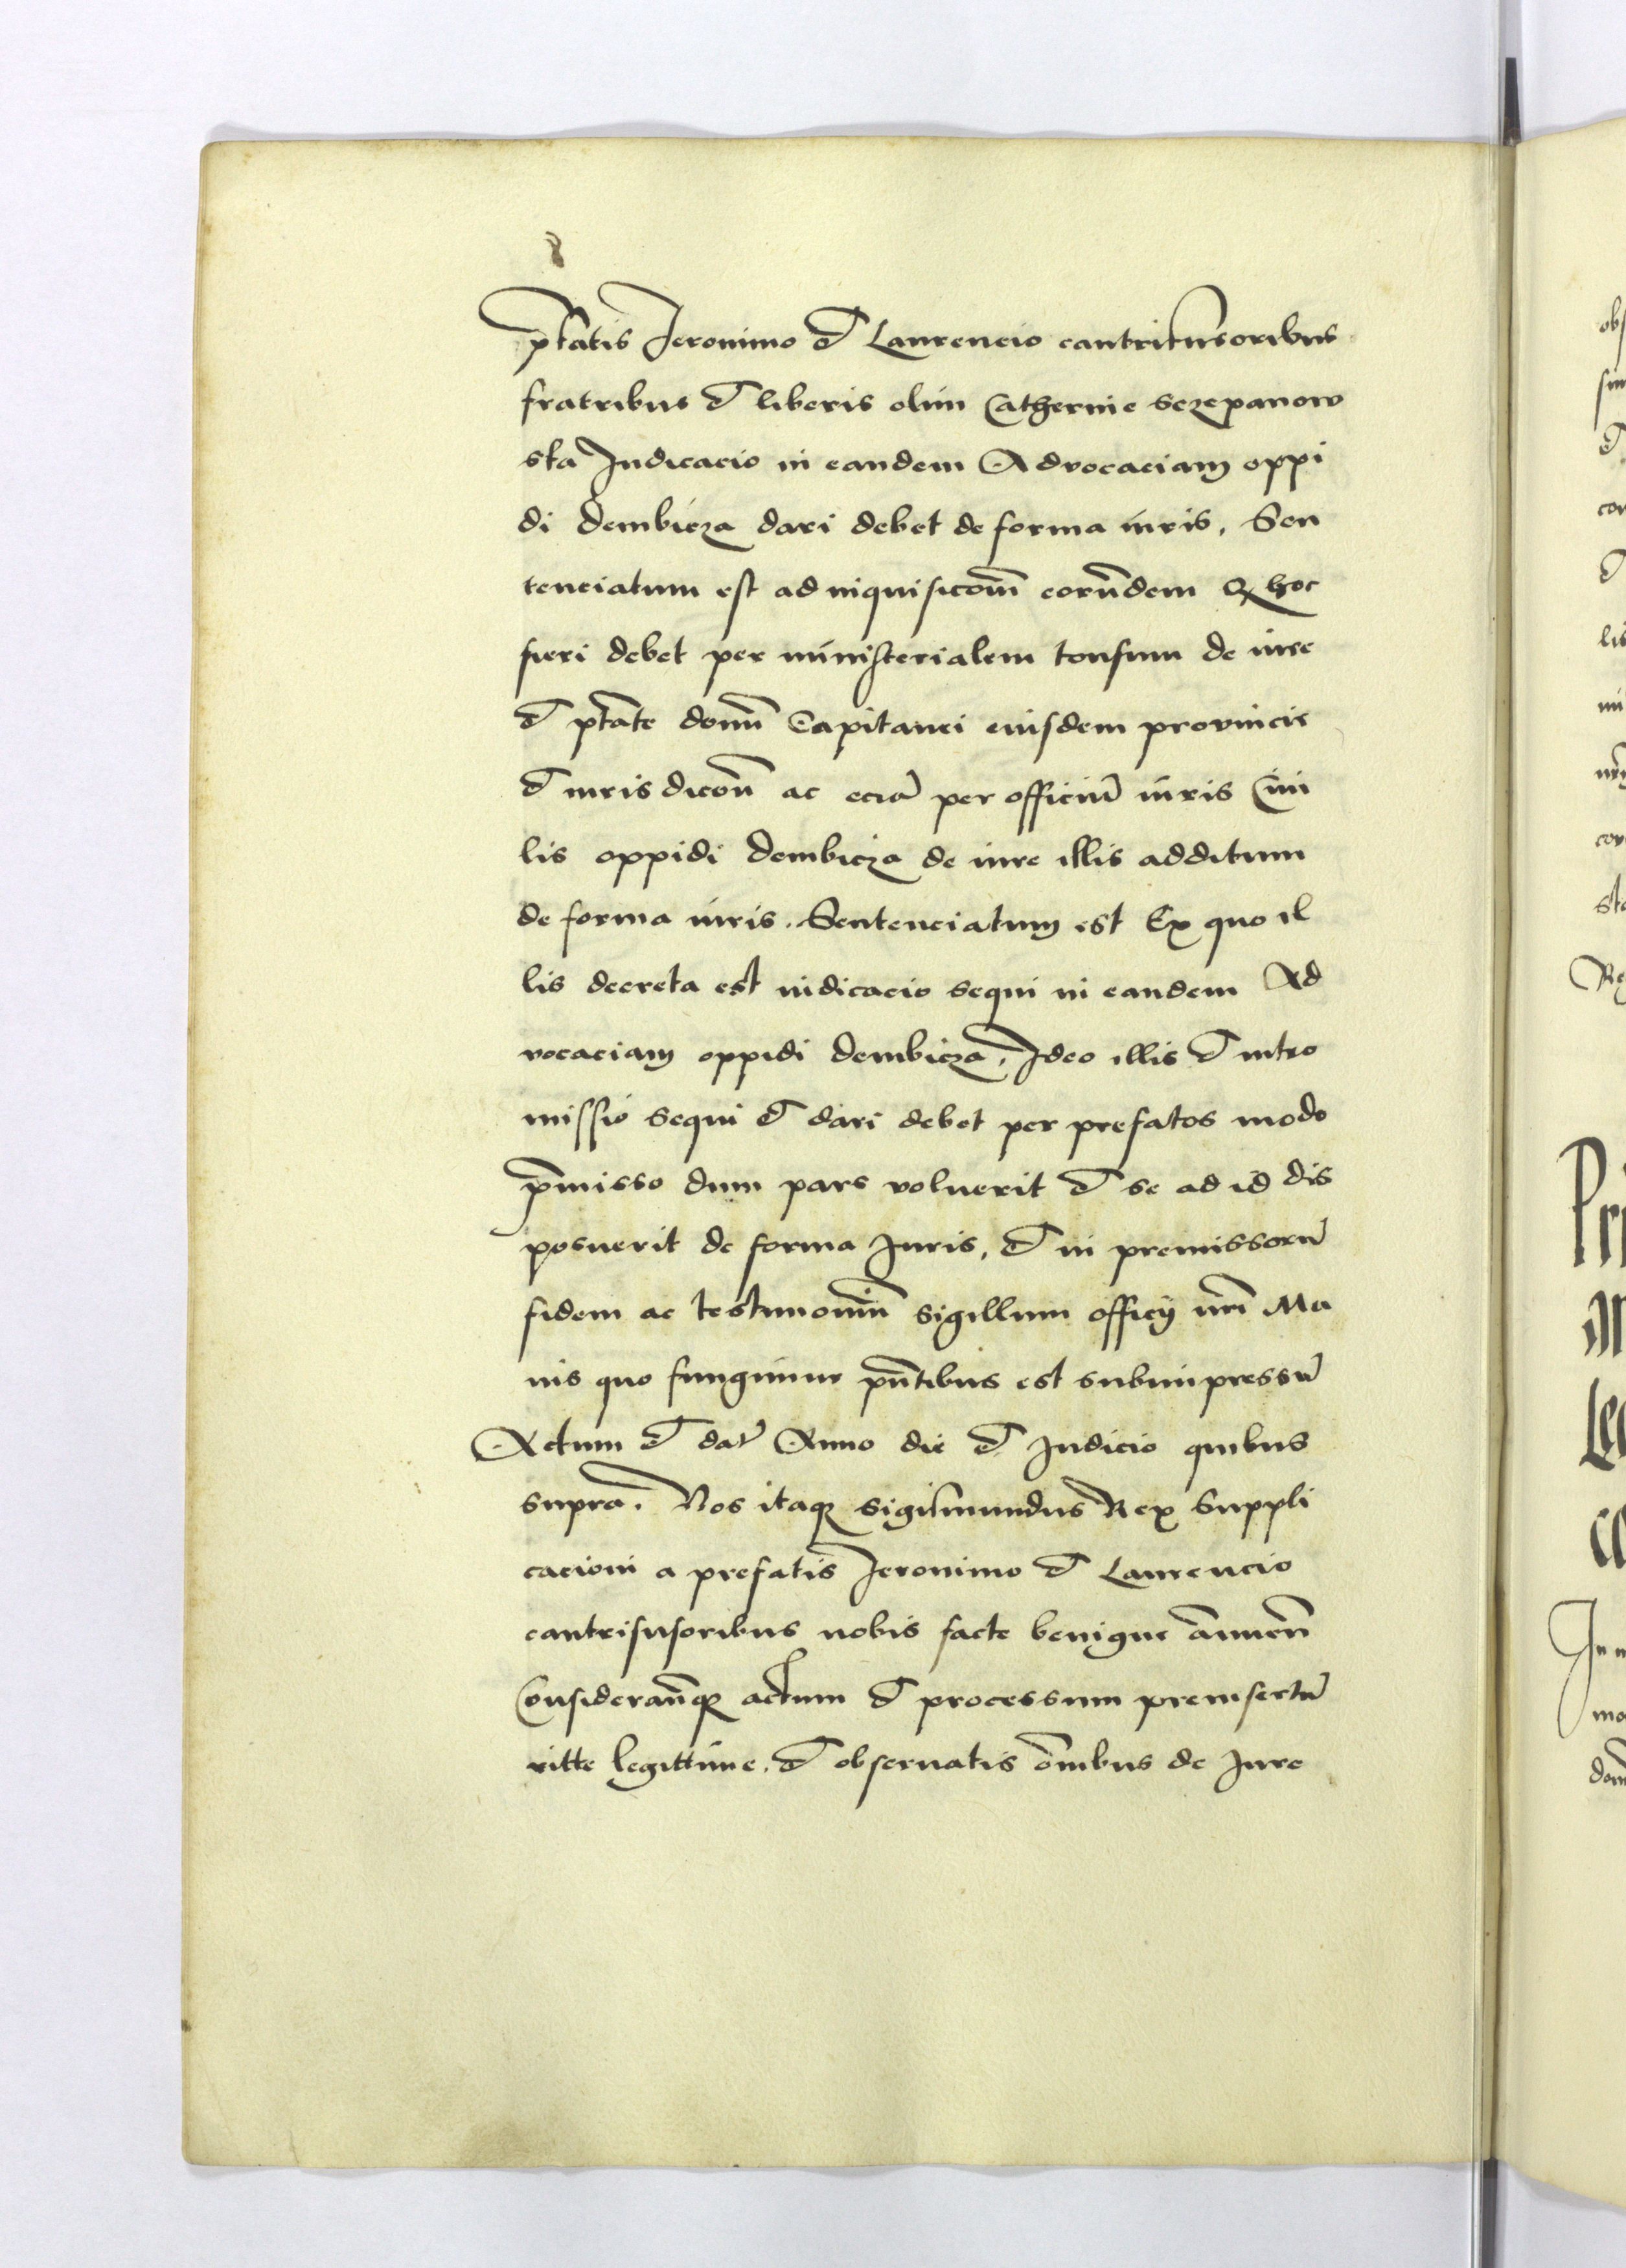 p̄fatis Jeronimo et Laurencio cantrifusoribus
fratribus et liberis olim Catherine Sczepanow
ska Iudicacio in eandem Advocaciam oppi
di Dembicza dari debet de forma iuris, Sen
tenciatum est ad inquisicoēm eorūdem Q hoc
fieri debet per ministerialem tonsum de iure
et ptāte domī Capitanei eiusdem provincie
et iurisdicoīs ac eciā per officiū iuris Civi
lis oppidi Dembicza de iure illis additum
de forma iuris. Sentenciatum est Ex quo il
lis decreta est iudicacio sequi in eandem Ad
vocaciam oppidi Dembicza, Ideo illis et intro
missio sequi et dari debet per prefatos modo
p̄misso dum pars voluerit et se ad id dis
posuerit de forma Iuris, et in premissorū
fidem ac testimoniū sigillum officij nr̄i Ma
nis quo fungimur pn̄tibus est subimpressū
Actum et dat̄ Anno die et Iudicio quibus
supra. Nos itaq Sigismundus Rex Suppli
cacioni a prefatis Jeronimo et Laurencio
cantrifusoribus nobis facte benigne ānuen̄
Consideran̄q actum et processum preinsertū
ritte legittime, et observatis om̄ibus de Iure